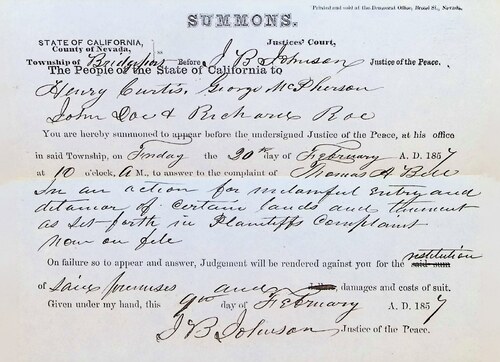 Printed and sold at the Democrat Office, Broad St., Nevada.
SUMMONS.
STATE OF CALIFORNIA,
County of Nevada,
Justices' Court,
Township of Bridgeport Before J B Johnson Justice of the Peace.
The People of the State of California to
Henry Curtis, George McPherson
John Doe & Richard Roe
You are hereby summoned to appear before the undersigned Justice of the Peace, at his office
in said Township, on Friday the 20th day of February A. D. 1857
at 10 o'clock, A M., to answer to the complaint of Thomas A
In an action for unlawful Entry and
detainor of Certain lands and tennent
as set forth in Plaintiffs Complaint
Now on file
On failure so to appear and answer, Judgement will be rendered against you for the restitution said sum
of said premises and damages and costs of suit.
Given under my hand, this 9th day of February A. D. 1857
J B Johnson Justice of the Peace.